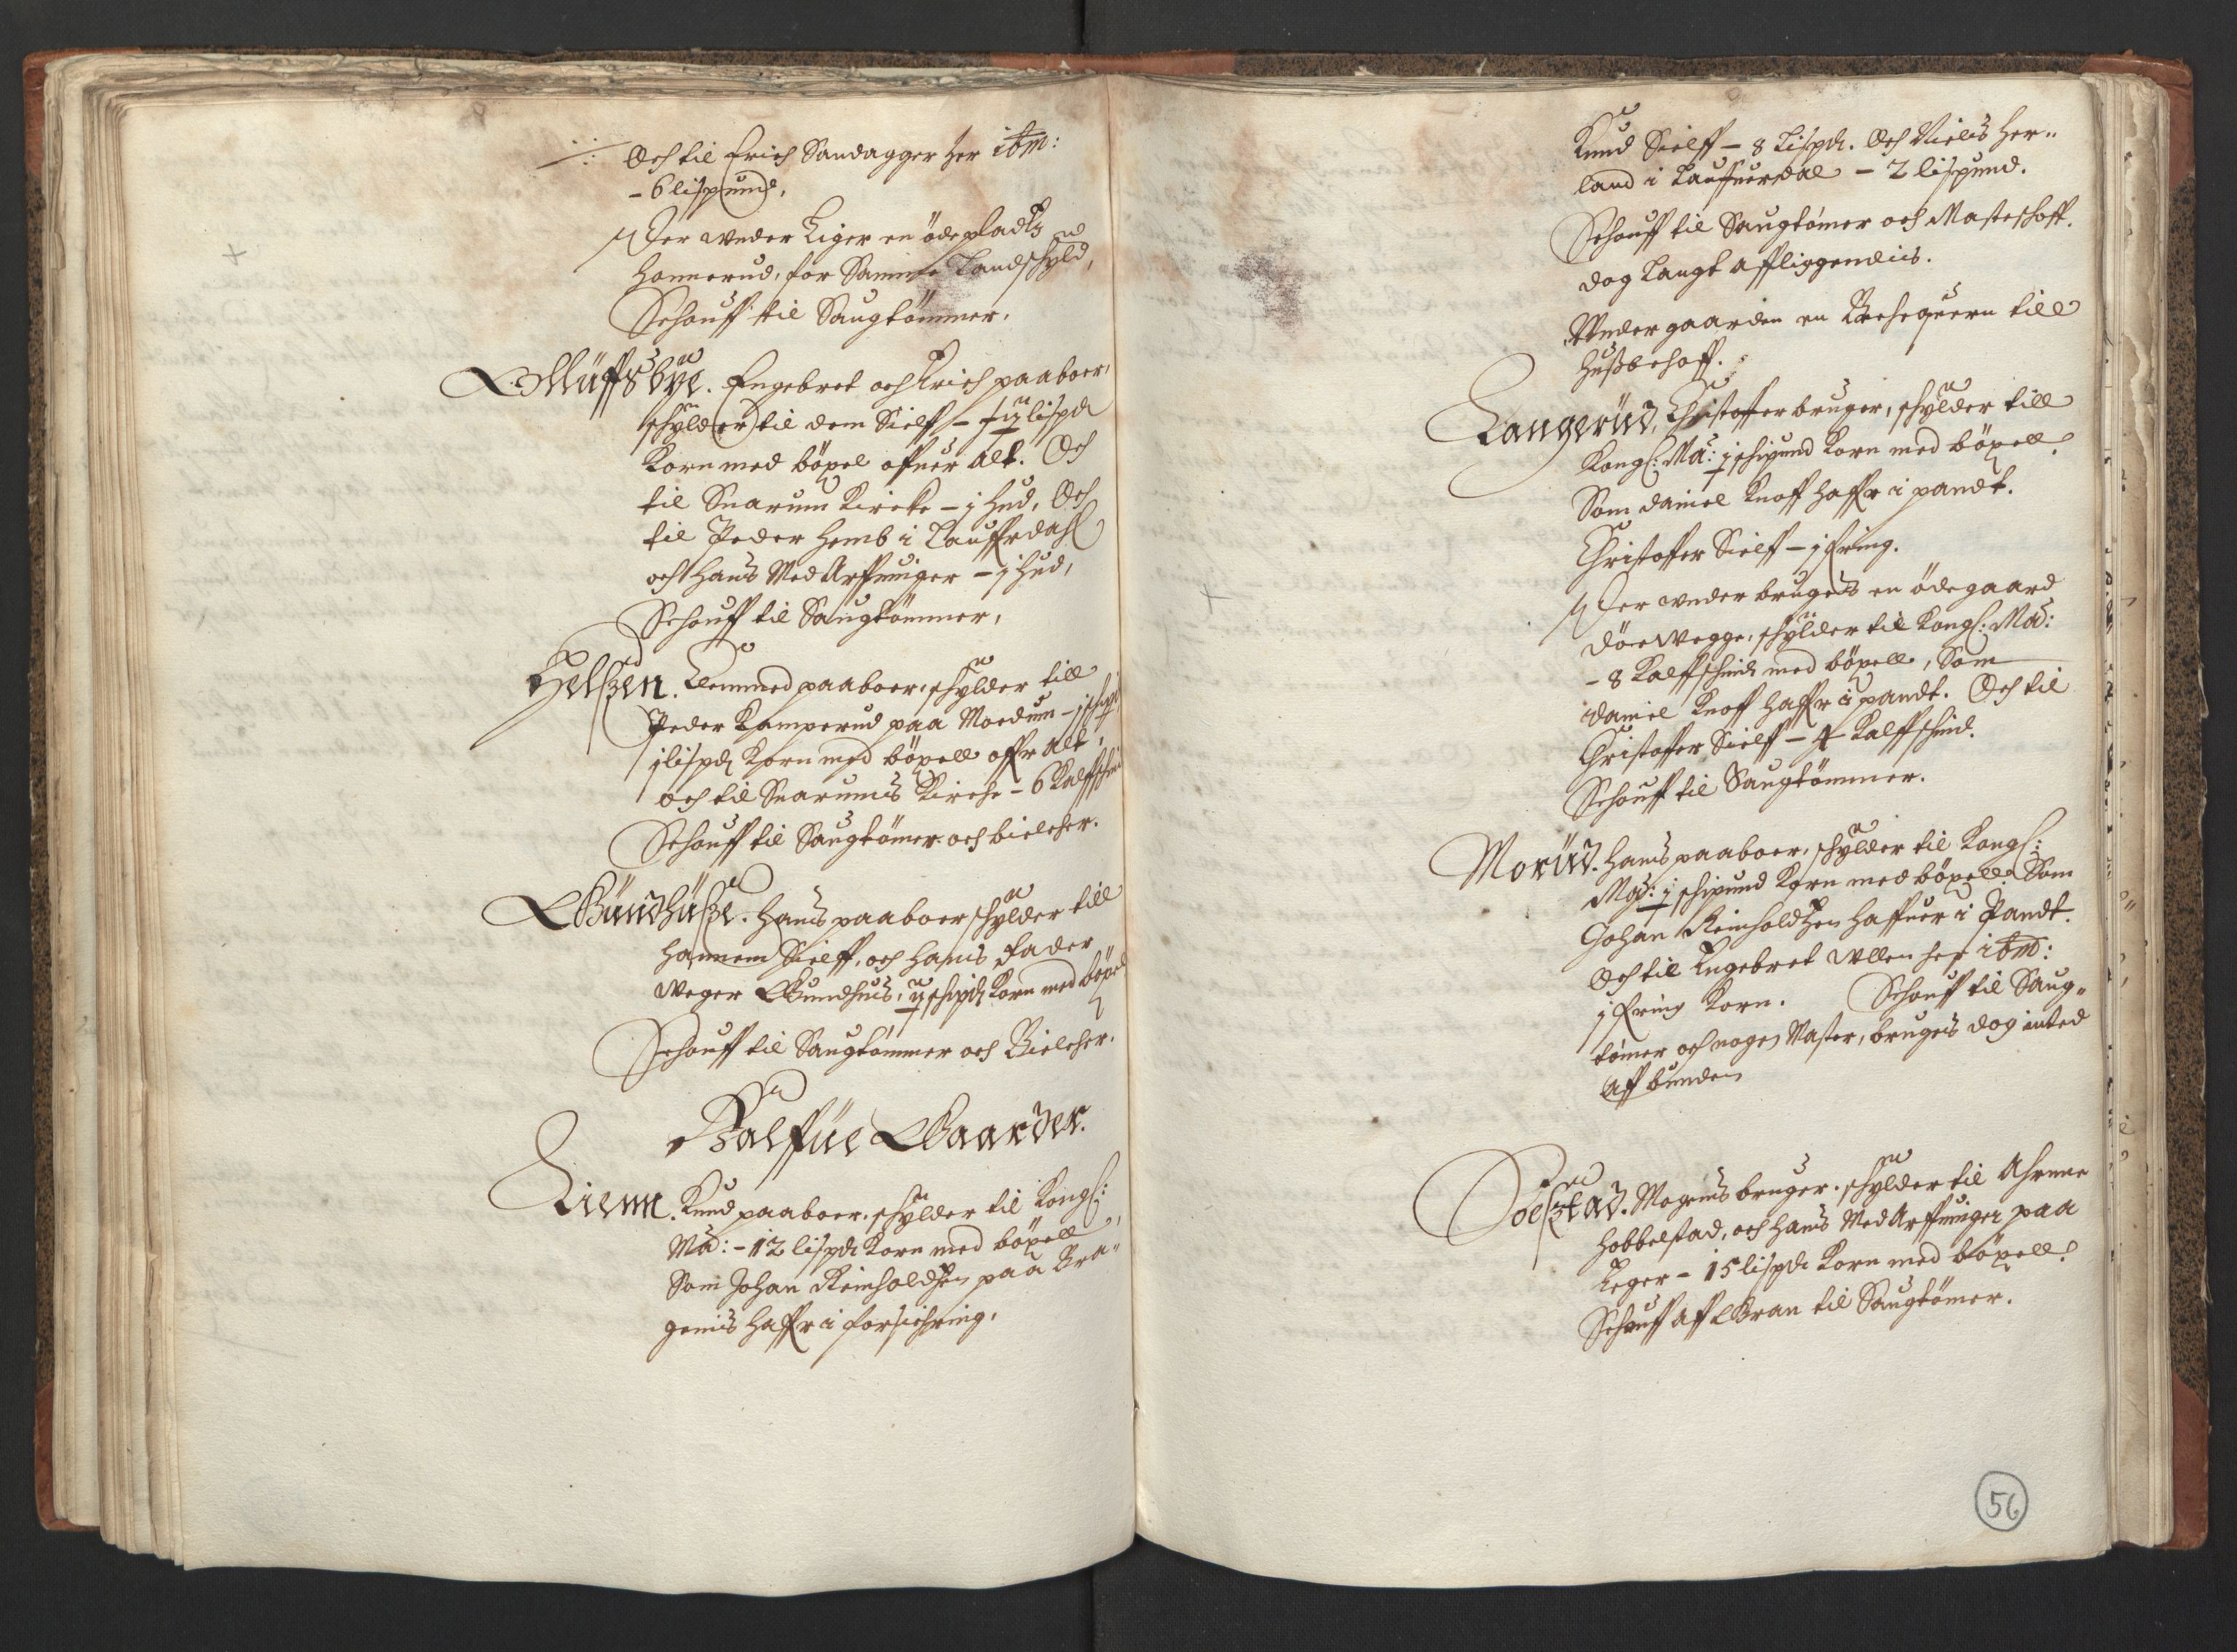 Och til Erich Sandagger her ibm:
- 6 lispund,
Der under Liger en ödepladtz
Honnerud, for Samme Landschyld,
Schouff til Saugtömmer.
Gluffsbye. Engebret och Erich paaboer,
schylder til dem Sielff - lispd
Korn med böxel offuer alt. Och
til Snarum Kircke - j hud, Och
til Peder Hemb i Lauffrdahl
och Hans Med Arffuinger - j hud,
Schouff til Saugtömmer,
Helßen. Amund paaboer, schylder till
Peder Kamperud paa Modum - j schipd
j lispd Korn med böxell offr alt,
och til Snarums Kirche - 6 Kalffschind
Schouff til Saugtömer och bielcher.
Gundhuße. Hans paaboer schylder till
hannem Sielff, och hans Fader
Weger Gundhus, schipd Korn med böxel
Schouff til Saugtömmer och Bielcher.
Halffue Gaarder.
Liemn. Knud paaboer, schylder til Kongl:
Ma: - 12 lispd Korn med böxell,
Som Johan Reinholdßen paa Bra-
genis haffr i forsichring,
Knud Sielff - 8 Lispd. Och Nielß Her-
land i Lauffuerdal - 2 lispund.
Schouff til Saugtömer och Masteschoff.
dog Langt affliggendis.
Under gaarden en Bechequern till
Hußbehoff.
Langerud, Christoffer bruger, schylder till
Kongl: Ma: schipund Korn med böxell.
Som Daniel Knoff haffr i pandt.
Christoffer Sielff - j fring.
Der under brugeß en ödegaard
Döewegge, schylder til Kongl: Ma:
- 8 Kalffschind med böxell, Som
Daniel Knoff haffr i pandt. Och til
Christoffer Sielff - 4 Kalffschind.
Schouff til Saugtömmer.
Morud. Hans paaboer, schylder til Kongl:
Ma: schipund Korn med böxell. Som
Johan Reinholdßen haffuer i Pandt.
Och til Engebret Ullen her ibm:
j fring Korn. Schouff til Saug-
tömer och nogen Master, brugeß dog inted
aff bunden
Doeßtad. Mogens bruger. schylder til Ahrnne
Hobbelstad, och Hans Med Arffuinger paa
Eger - 15 lispd Korn med böxell.
Schouff aff Gran til Saugtömer.
56